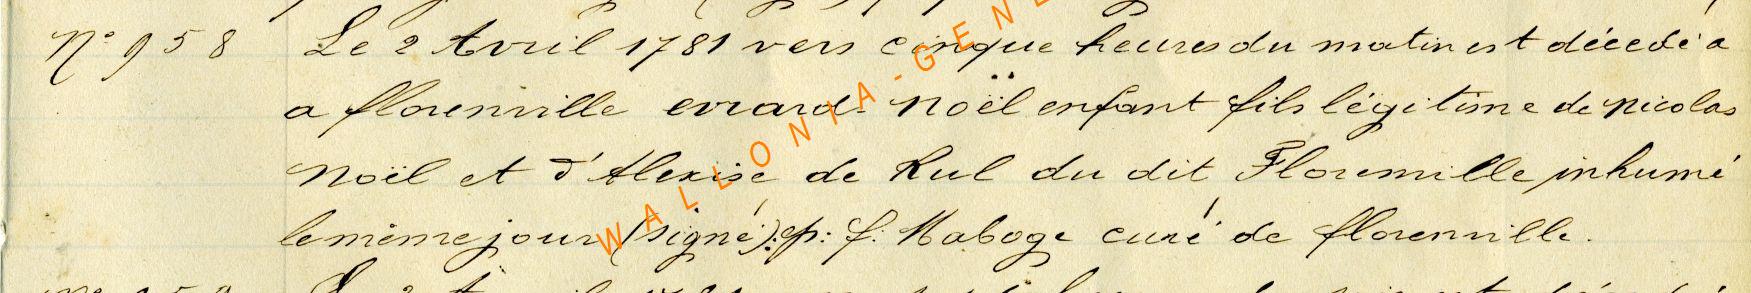 N° 958 Le 2 Avril 1781 vers cinque heures du matin est décedé a
a florenville evrard Noël enfant fils légitime de Nicolas
Noël et d'Alexise de Rul du dit Florenville inhumé
le même jour (signé): cp: f: Maboge curé de florenville.
WALLONIA-GENE